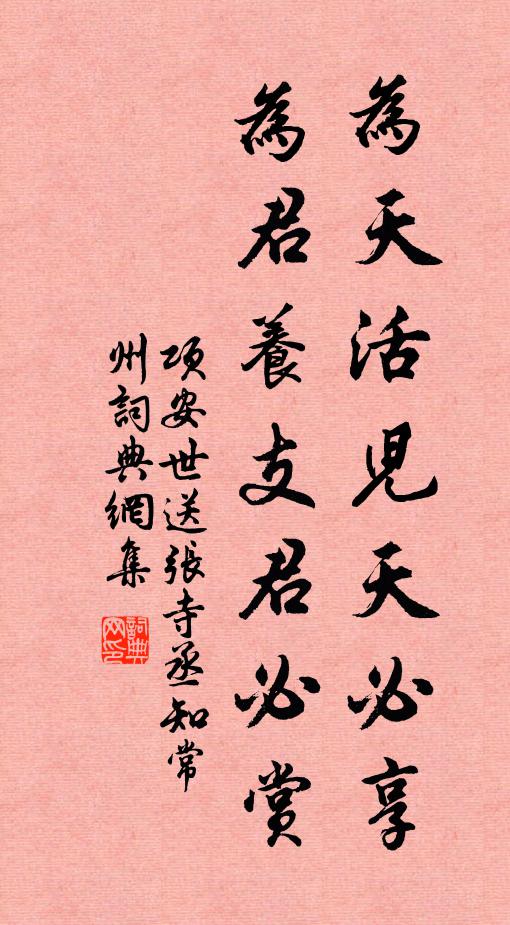 為天活児天必享
為君養支君必賞
項安世送張寺丞知常
州詞典網集
詞典网印